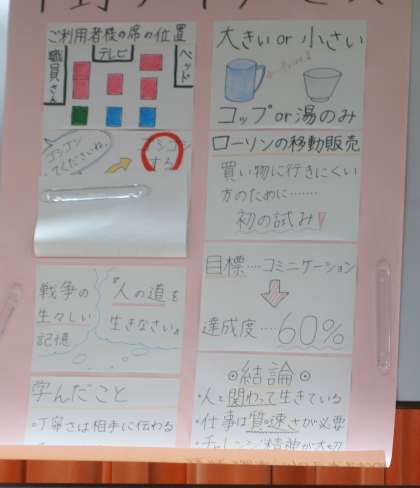 ご利用者様の席の位置
テレビ
職員さん
ベッド
ゴシゴシ
てくださいね。
ゴシゴシ
する
戦争の
生々しい
記憶
『人の道を
生きなさい。』
学んだこと
・丁寧さは相手に伝わる
大きい or 小さい
コップ or 湯のみ
ローソンの移動販売
買い物に行きにくい
方のために……
初の試み!
目標…コミニケーション
達成度…60%
◎結論◎
・人と関わって生きている
・仕事は質の速さが必要
・チャレンジ精神が大切